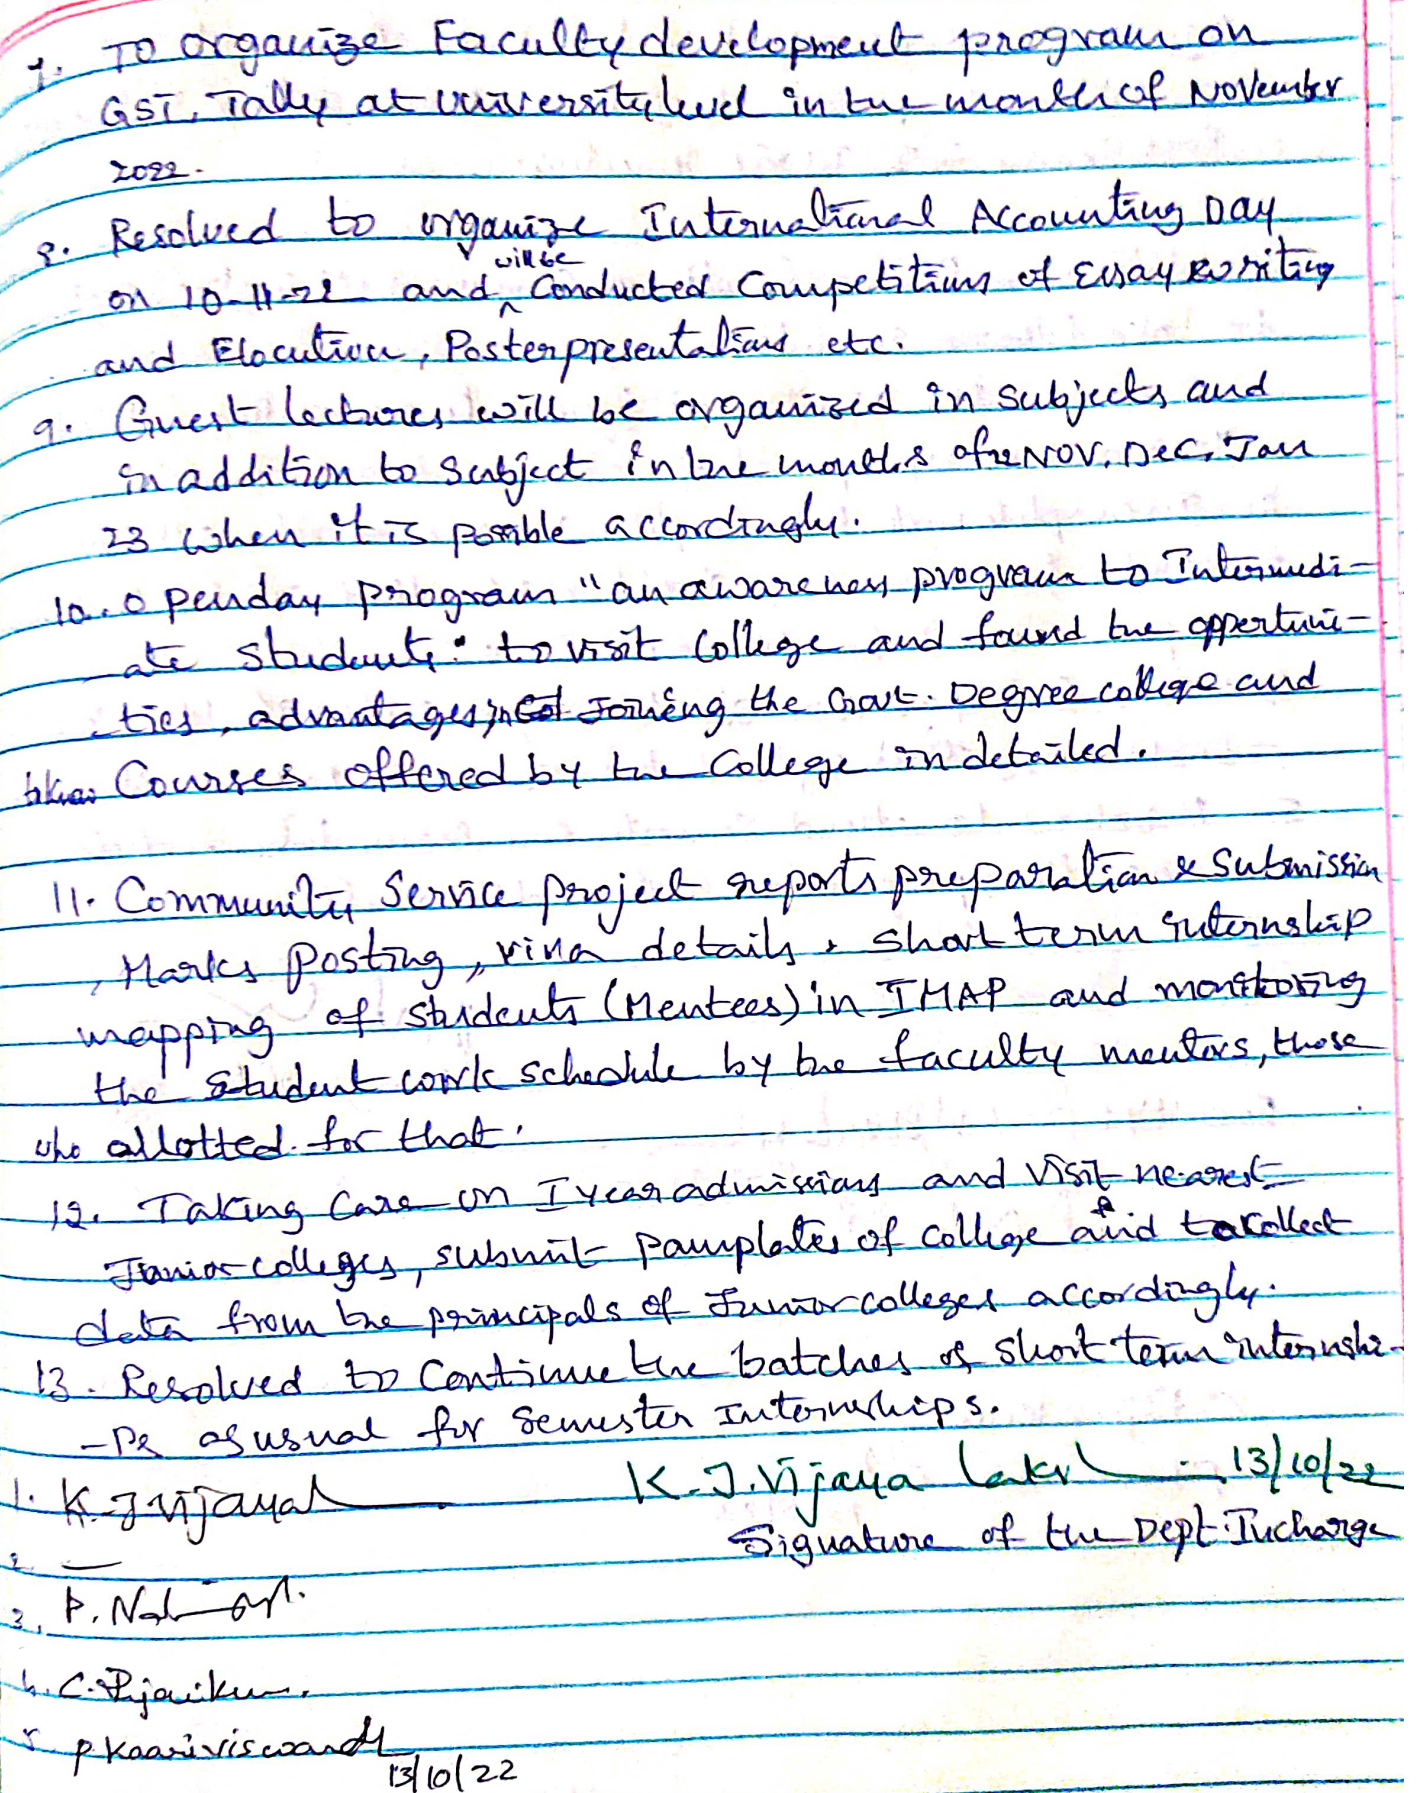 7. To organize Faculty development program on
GST, Tally at university level in the month of November
2022.
8. Resolved to organize International Accounting Day
will be
on 10-11-22 and Conducted Competitions of Essay writing
and Elocution, Poster presentations etc.
9. Guest lectures will be organized in subjects and
in addition to subject in the months of NOV, Dec, Jan
23 when it is possible accordingly.
10. Openday program "an awareness program to Intermedi-
ate students" to visit College and found the opportuni-
ties, advantages in Joining the Govt. Degree college and
Courses offered by the College in detailed.
11. Community Service project reports preparation & Submission
, Marks Posting, viva details, short term internship
mapping of students (Mentees) in IMAP and monitoring
the student work schedule by the faculty mentors, those
who allotted for that.
12. Taking Care on I year admissions and visit nearest
Junior colleges, submit pamplates of college and to collect
data from the principals of Junior colleges accordingly.
13. Resolved to Continue the batches of short term internshi-
-ps as usual for Semester Internships.
1. K.J Vijaya K.J. Vijaya Laksh 13/10/22
2. — Signature of the Dept. Incharge
3. P.
4. C.
5. P Kasiviswanath
13/10/22